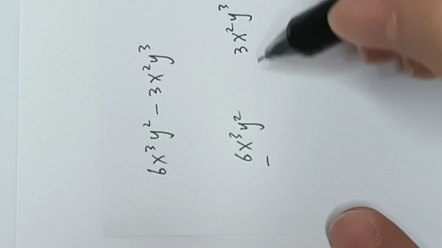 6x³y² − 3x²y³
6x³y² 3x²y³
−